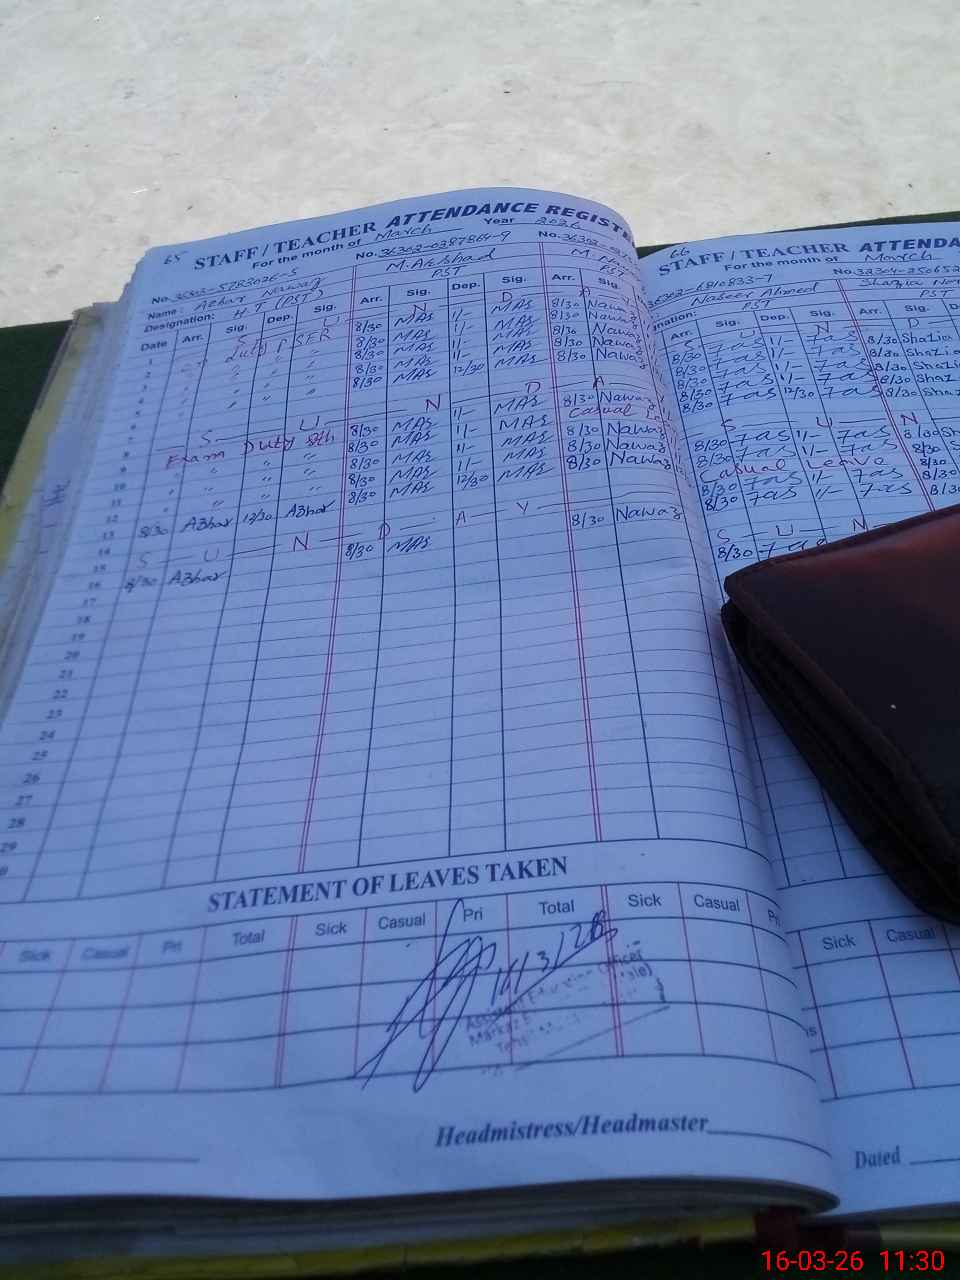 65
STAFF / TEACHER ATTENDANCE REGISTE
For the month of March Year 2026
No. 36303-5783026-5 No. 36302-0387864-9 No. 36302-
Name: Azhar Nawaz M. Arshad M. N
Designation: H.T (PST) PST PST
Date Arr. Sig. Dep. Sig. Arr. Sig. Dep. Sig. Arr. Sig.
1 S U N D A Y
2 Duty PSER 8/30 MAS 1/- MAS 8/30 Nawaz
3 " " " 8/30 MAS 1/- MAS 8/30 Nawaz
4 " " " 8/30 MAS 1/- MAS 8/30 Nawaz
5 " " " 8/30 MAS 1/- MAS 8/30 Nawaz
6 " " " 8/30 MAS 12/30 MAS 8/30 Nawaz
7
8 S U N D A
9 Exam Duty 8th 8/30 MAS 1/- MAS 8/30 Nawaz
10 " " " 8/30 MAS 1/- MAS Casual
11 " " " 8/30 MAS 1/- MAS 8/30 Nawaz
12 " " " 8/30 MAS 1/- MAS 8/30 Nawaz
13 8/30 Azhar 12/30 Azhar 8/30 MAS 12/30 MAS 8/30 Nawaz
14
15 S U N D A Y
16 8/30 Azhar 8/30 MAS 8/30 Nawaz
17
18
19
20
21
22
23
24
25
26
27
28
29
STATEMENT OF LEAVES TAKEN
Sick Casual Pri Total Sick Casual Pri Total Sick Casual Pri
11/3/26
Assistant Education Officer
Markaz
Headmistress/Headmaster
66
STAFF / TEACHER ATTENDA
For the month of March
36302-6810833-7 No. 32304-
Nabeer Ahmed Shazia Nor
nation: PST PST
Arr. Sig. Dep. Sig. Arr. Sig.
S U N D
8/30 7as 1/- 7as 8/30 Shazia
8/30 7as 1/- 7as 8/30 Shazia
8/30 7as 1/- 7as 8/30 Shaz
8/30 7as 1/- 7as 8/30 Shaz
8/30 7as 12/30 7as 8/30 Sha
S U N
8/30 7as 1/- 7as 8/30 Sh
8/30 7as 1/- 7as 8/30 S
Casual Leave 8/30
8/30 7as 1/- 7as 8/30
8/30 7as 1/- 7as 8/30
S U N
8/30 7as
Sick Casual
Dated
16-03-26 11:30